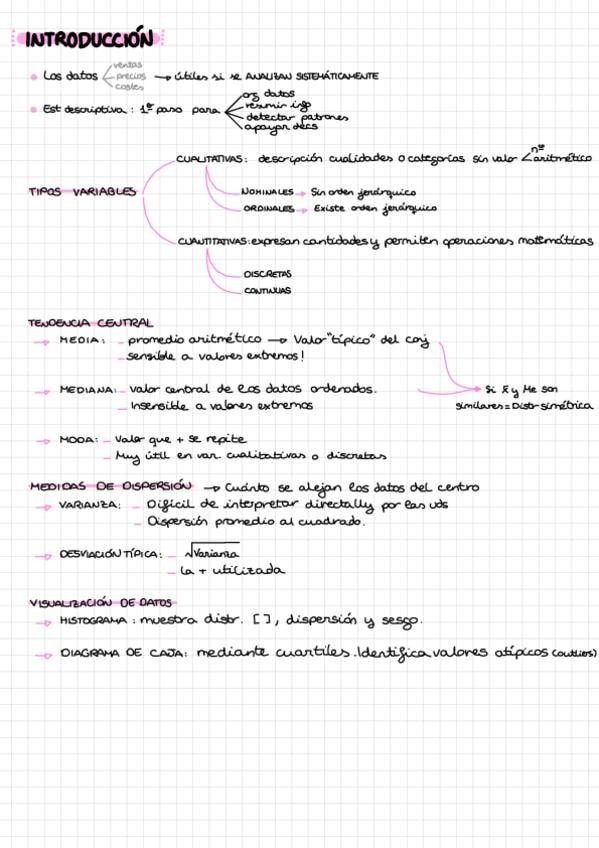 INTRODUCCIÓN
ventas
• Los datos precios → útiles si se ANALIZAN SISTEMÁTICAMENTE
costes
org datos
• Est descriptiva: 1er paso para resumir info
detectar patrones
apoyar decs
nº
CUALITATIVAS: descripción cualidades o categorías sin valor < aritmético
TIPOS VARIABLES
NOMINALES → Sin orden jerárquico
ORDINALES → Existe orden jerárquico
CUANTITATIVAS: expresan cantidades y permiten operaciones matemáticas
DISCRETAS
CONTINUAS
TENDENCIA CENTRAL
→ MEDIA: – promedio aritmético → Valor "típico" del conj
– sensible a valores extremos!
→ MEDIANA: – valor central de los datos ordenados.
– Insensible a valores extremos
→ Si x̄ y Me son
similares = Distr simétrica
→ MODA: – Valor que + se repite
– Muy útil en var. cualitativas o discretas
MEDIDAS DE DISPERSIÓN → Cuánto se alejan los datos del centro
→ VARIANZA: – Difícil de interpretar directally por las uds
– Dispersión promedio al cuadrado.
→ DESVIACIÓN TÍPICA: – √Varianza
– La + utilizada
VISUALIZACIÓN DE DATOS
→ HISTOGRAMA: muestra distr. [ ], dispersión y sesgo.
→ DIAGRAMA DE CAJA: mediante cuartiles. Identifica valores atípicos (outlios)